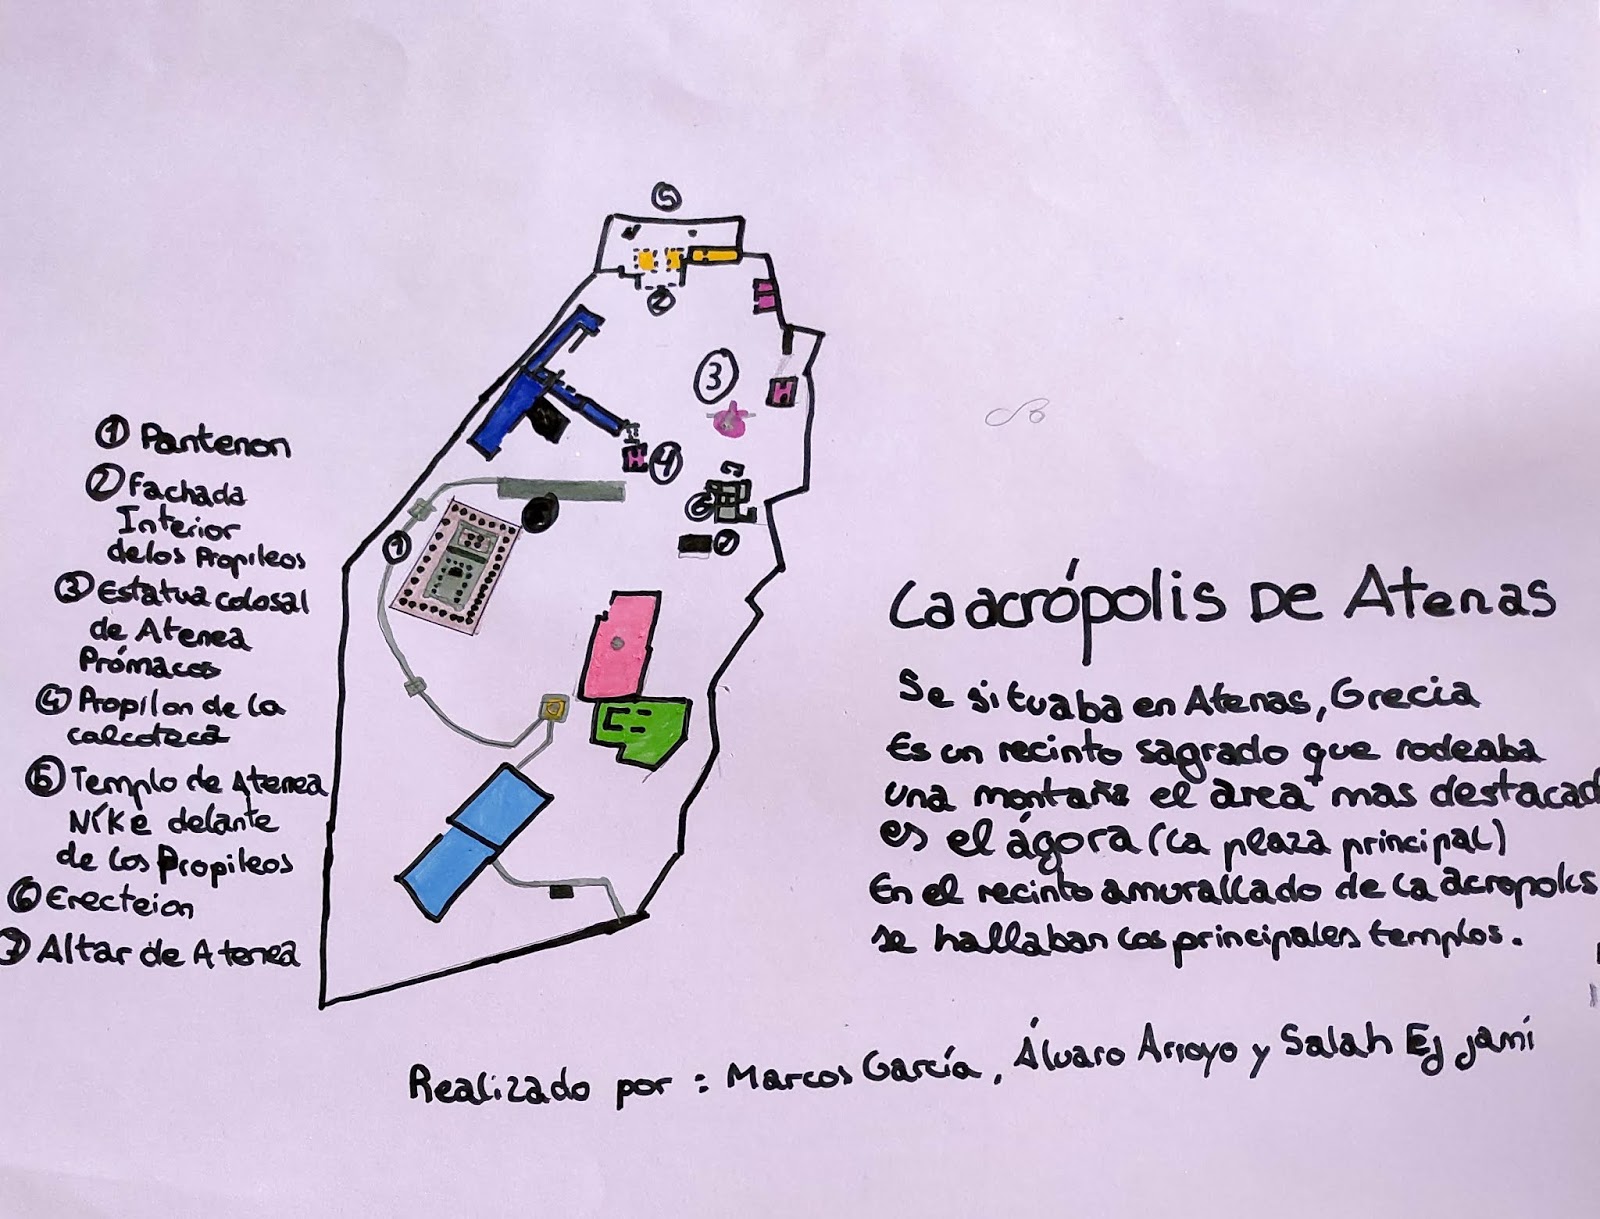 5
2
3
4
1
6
7
① Pantenon
② Fachada
Interior
de los Propileos
③ Estatua colosal
de Atenea
Prómacos
④ Propilon de la
calcoteca
⑤ Templo de Atenea
Níke delante
de los Propileos
⑥ Erecteion
⑦ Altar de Atenea
La acrópolis De Atenas
Se situaba en Atenas, Grecia
Es un recinto sagrado que rodeaba
una montaña el área mas destacad
es el ágora (la plaza principal)
En el recinto amurallado de la acropolis
se hallaban los principales templos.
Realizado por : Marcos García, Álvaro Arroyo y Salah Ej jami